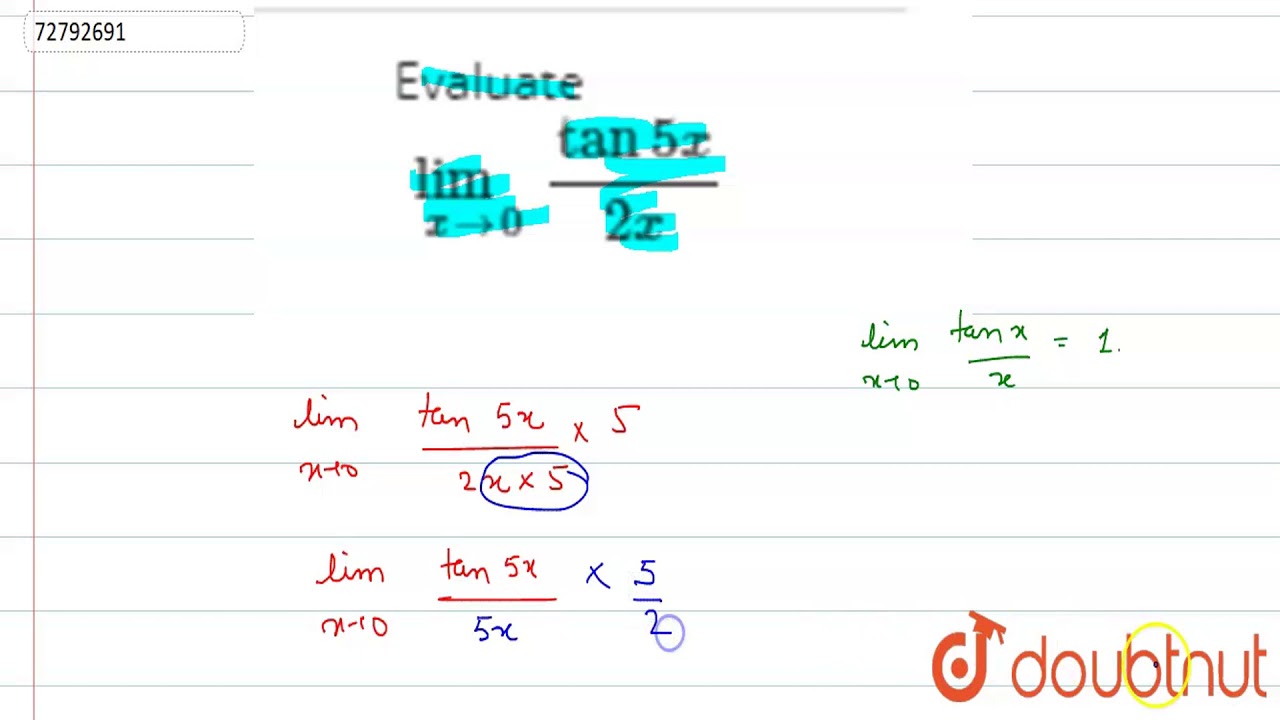 72792691
Evaluate
lim x→0 tan 5x / 2x
lim x→0 tan x / x = 1.
lim x→0 tan 5x / 2x × 5 × 5
lim x→0 tan 5x / 5x × 5 / 2
doubtnut